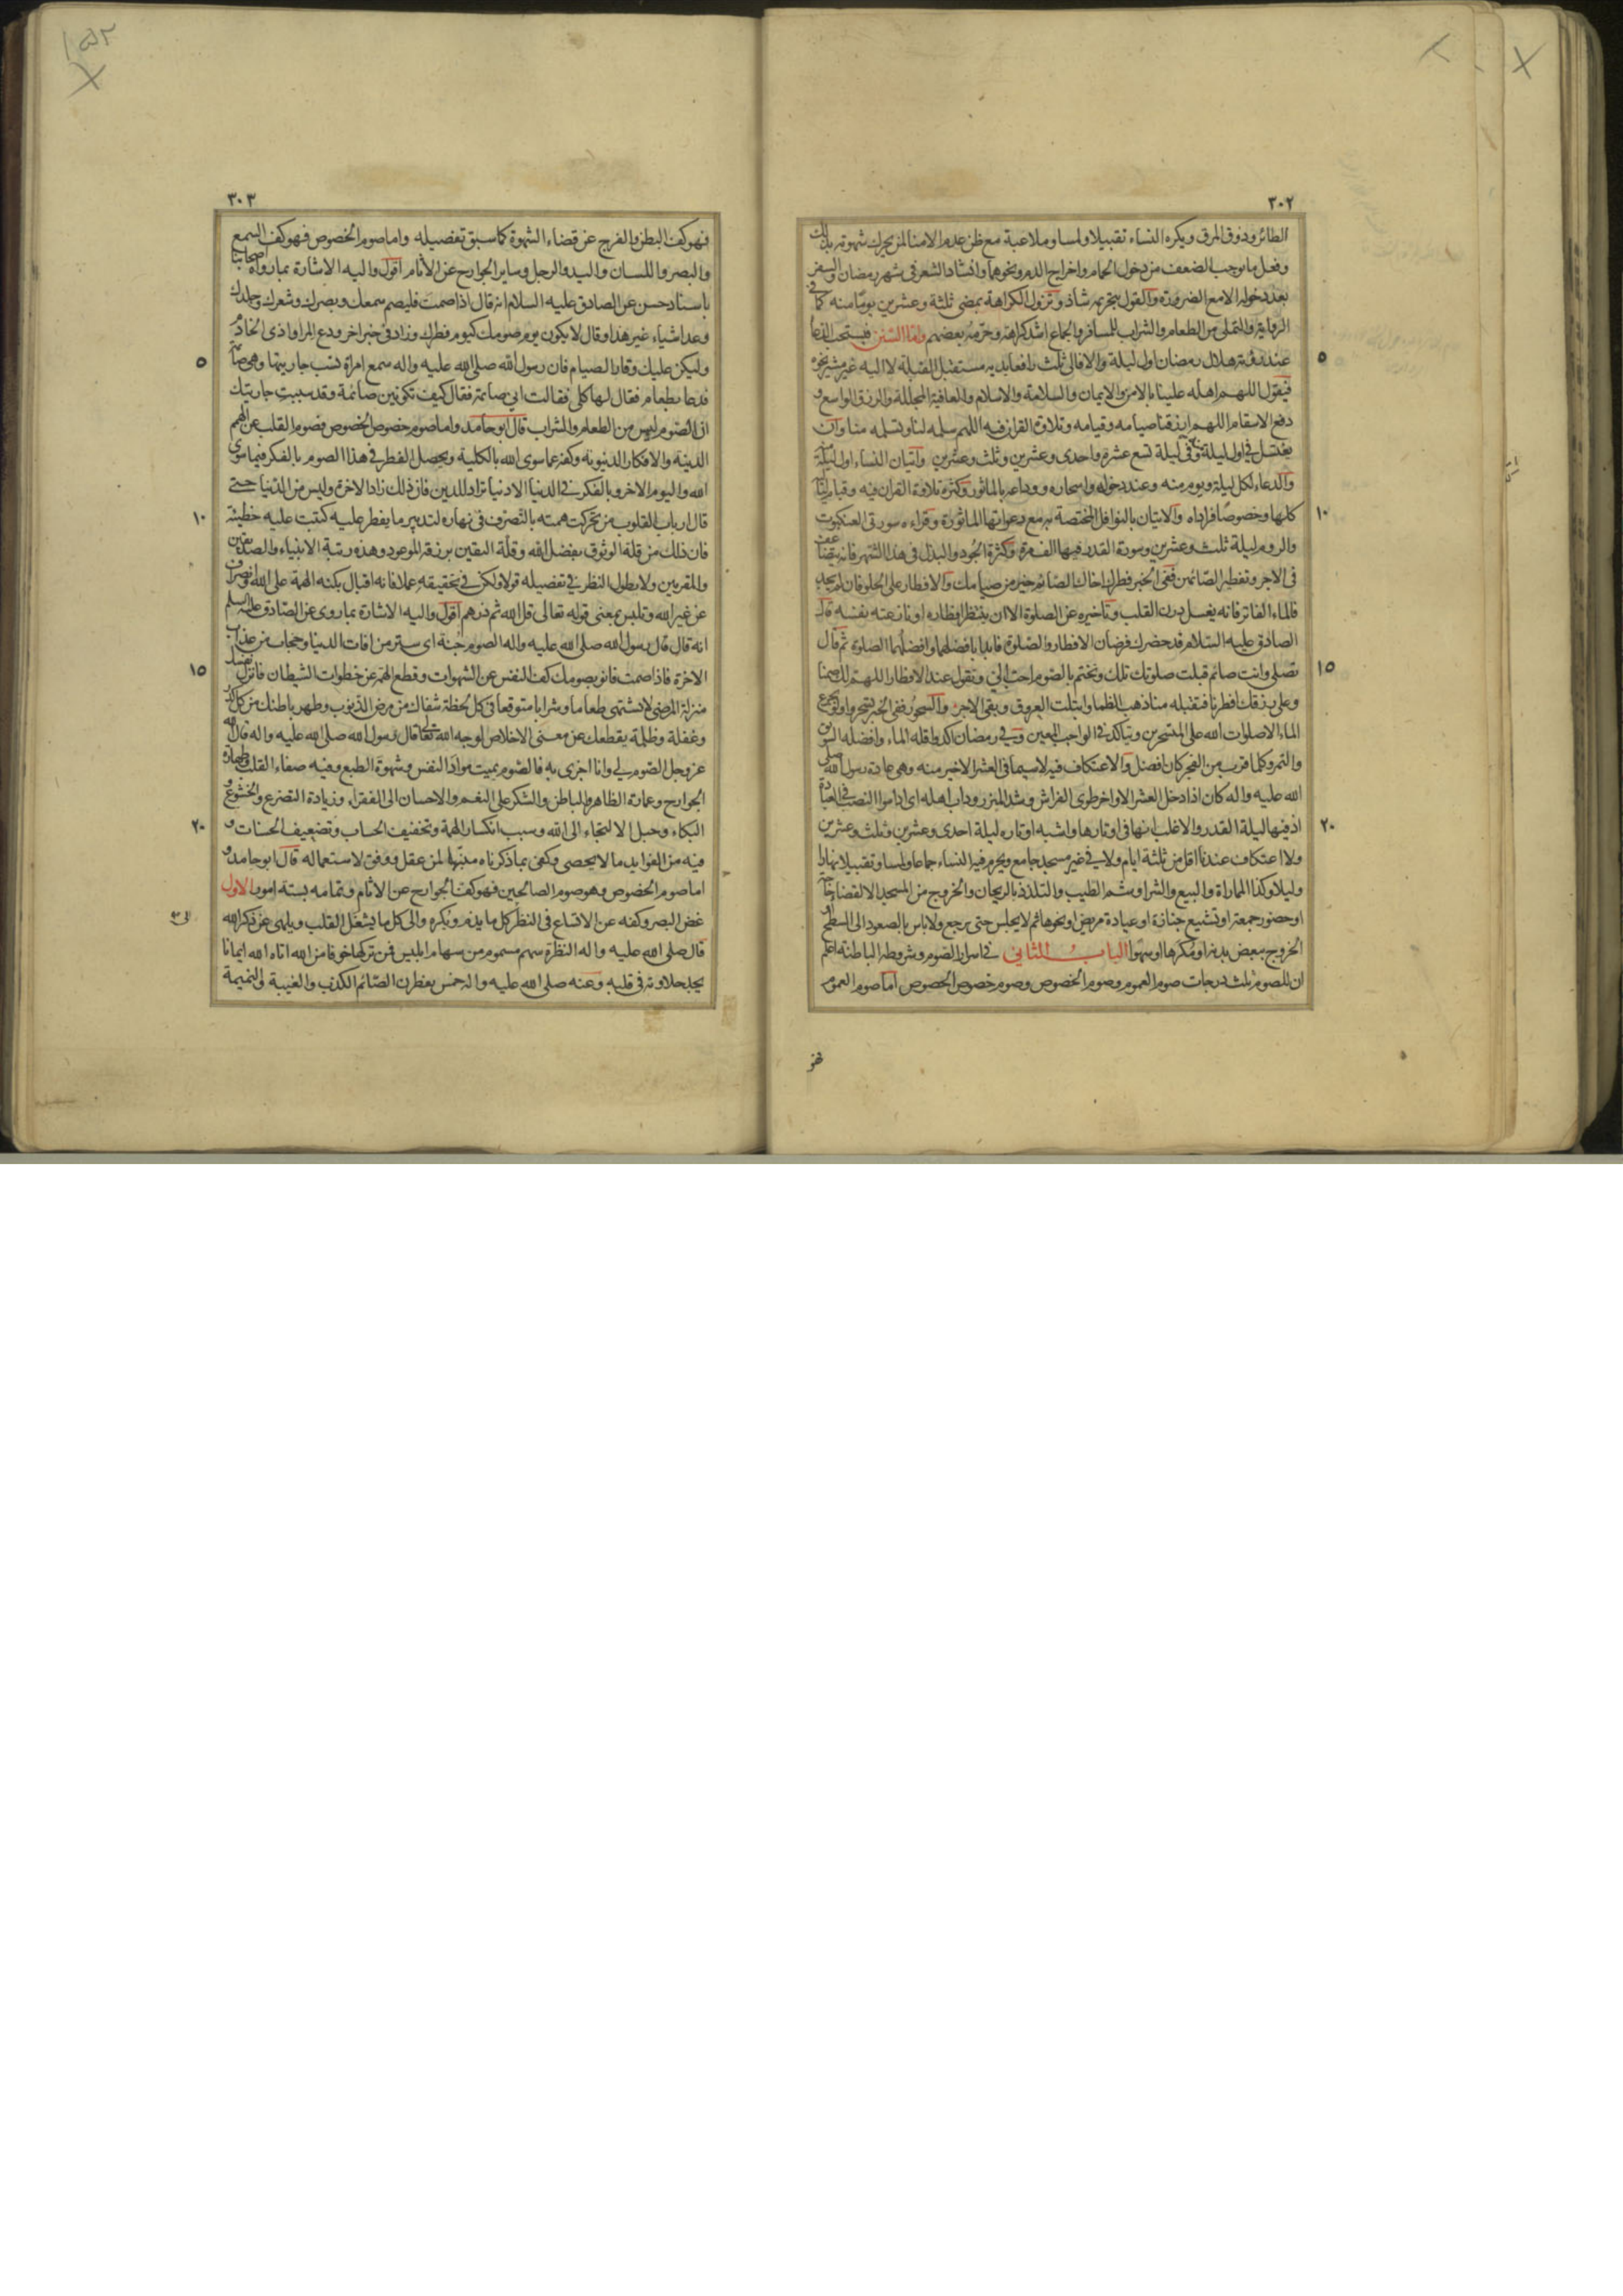 ٣٠٢
الطائر وذوق المرق ويكره النساء تقبيلا ولمسا وملاعبة مع ظن عدم الامنا لمن يحرك شهوته بذلك
وفعل ما يوجب الضعف من دخول الحمام واخراج الدم ونحوهما وانشاد الشعر في شهر رمضان والسفر
بعد دخوله الا مع الضرورة والقول بتحريمه شاذ وتزول الكراهة بمضى ثلثة وعشرين يوما منه كما في
الرواية والتملى من الطعام والشراب للمسافر والجماع اشد كراهة وحرمه بعضهم واما السنن فيستحب الدعا
٥
عند رؤية هلال رمضان اول ليلة والا فالى ثلث رافعا يديه مستقبل القبلة لا اليه غير مشير نحوه
فيقول اللهم اهله علينا بالامن والايمان والسلامة والاسلام والعافية المجللة والرزق الواسع و
دفع الاسقام اللهم ارزقنا صيامه وقيامه وتلاوة القران فيه اللهم سلمه لنا وتسلمه منا وان
يغتسل في اول ليلة منه وفي ليلة تسع عشرة واحدى وعشرين وثلث وعشرين واتيان النساء اول ليلة
والدعاء لكل ليلة ويوم منه وعند دخوله واسحاره ووداعه بالماثور وكثرة تلاوة القران فيه وقيام
١٠
كلها وخصوصا فراداه والاتيان بالنوافل المختصة به مع دعواتها الماثورة وقراءه سورتى العنكبوت
والروم ليلة ثلث وعشرين وسورة القدر فيها الف مرة وكثرة الجود والبذل في هذا الشهر فانه
في الاجر وتفطير الصائمين ففى الخبر فطرك اخاك الصائم خير من صيامك والافطار على الحلو فان لم يجد
فالماء الفاتر فانه يغسل درن القلب وتاخيره عن الصلوة الا ان ينتظر افطاره او نازعته نفسه قال
الصادق عليه السلام قد حضرك فرضان الافطار والصلوة فابدا بافضلهما وافضلهما الصلوة ثم قال
١٥
تصلى وانت صائم فتكتب صلوتك تلك وتختم بالصوم احب الى وتقول عند الافطار اللهم لك صمنا
وعلى رزقك افطرنا فتقبله منا ذهب الظما وابتلت العروق وبقى الاجر والسحور ففى الخبر تسحروا ولو بجرع
الماء الا صلوات الله على المتسحرين ويتاكد في الواجب المعين وفي رمضان اكد واقله الماء وافضله السويق
والتمر وكلما قرب من الفجر كان افضل والاعتكاف فيه لا سيما في العشر الاخير منه وهى عادة رسول الله صلى
الله عليه واله كان اذا دخل العشر الاواخر طوى الفراش وشد الميزر ودأب اهله اى اداموا النصب في العبادة
٢٠
اذ فيها ليلة القدر والاغلب انها في اوتارها واشبه اوتاره ليلة احدى وعشرين وثلث وعشرين
ولا اعتكاف عندنا اقل من ثلثة ايام ولا في غير مسجد جامع ويحرم فيه النساء جماعا ولمسا وتقبيلا نهارا
وليلا وكذا المماراة والبيع والشرا وشم الطيب والتلذذ بالريحان والخروج من المسجد الا لقضاء حاجة
او حضور جمعة او تشييع جنازة او عيادة مريض او نحوها ثم لا يجلس حتى يرجع ولا باس بالصعود الى السطح و
الخروج ببعض بدنه او مكرها او سهوا الباب الثاني في اسرار الصوم وشروطه الباطنة اعلم
ان للصوم ثلث درجات صوم العموم وصوم الخصوص وصوم خصوص الخصوص اما صوم العموم
فهو
٣٠٣
فهو كف البطن والفرج عن قضاء الشهوة كما سبق تفصيله واما صوم الخصوص فهو كف السمع
والبصر واللسان واليد والرجل وساير الجوارح عن الاثام اقول واليه الاشارة بما رواه اصحابنا
باسناد حسن عن الصادق عليه السلام انه قال اذا صمت فليصم سمعك وبصرك وشعرك وجلدك
وعدا شياء غير هذا وقال لا يكون يوم صومك كيوم فطرك وزاد في خبر اخر ودع المرا واذى الخادم
٥
وليكن عليك وقار الصيام فان رسول الله صلى الله عليه واله سمع امراة تسب جاريتها وهى صائمة
فدعا بطعام فقال لها كلى فقالت انى صائمة فقال كيف تكونين صائمة وقد سببت جاريتك
ان الصوم ليس من الطعام والشراب قال ابو حامد واما صوم خصوص الخصوص فصوم القلب عن الهمم
الدنية والافكار الدنيوية وكفه عما سوى الله بالكلية ويحصل الفطر في هذا الصوم بالفكر فيما سوى
الله واليوم الاخر وبالفكر في الدنيا الا دنيا تراد للدين فان ذلك زاد الاخرة وليس من الدنيا حتى
١٠
قال ارباب القلوب من تحركت همته بالتصرف في نهاره لتدبير ما يفطر عليه كتبت عليه خطيئة
فان ذلك من قلة الوثوق بفضل الله وقلة اليقين برزقه الموعود وهذه رتبة الانبياء والصديقين
والمقربين ولا يطول النظر في تفصيله قولا ولكن في تحقيقه عملا فانه اقبال بكنه الهمة على الله وانصراف
عن غير الله وتلبس بمعنى قوله تعالى قل الله ثم ذرهم اقول واليه الاشارة بما روى عن الصادق عليه السلم
انه قال قال رسول الله صلى الله عليه واله الصوم جنة اى ستر من افات الدنيا وحجاب من عذاب
١٥
الاخرة فاذا صمت فانو بصومك كف النفس عن الشهوات وقطع الهمة عن خطوات الشيطان فانزل نفسك
منزلة المرضى لا تشتهى طعاما وشرابا متوقعا في كل لحظة شفاك من مرض الذنوب وطهر باطنك من كل كدر
وغفلة وظلمة يقطعك عن معنى الاخلاص لوجه الله تعالى قال رسول الله صلى الله عليه واله قال الله
عز وجل الصوم لى وانا اجزى به فالصوم يميت مواد النفس وشهوة الطبع وفيه صفاء القلب وطهارة
الجوارح وعمارة الظاهر والباطن والشكر على النعم والاحسان الى الفقراء وزيادة التضرع والخشوع و
٢٠
البكاء وحبل الالتجاء الى الله وسبب انكسار الهمة وتخفيف الحساب وتضعيف الحسنات و
فيه من الفوايد ما لا يحصى وكفى بما ذكرناه منبها لمن عقل ووفق لاستعماله قال ابو حامد و
اما صوم الخصوص وهو صوم الصالحين فهو كف الجوارح عن الاثام وتمامه بستة امور الاول
غض البصر وكفه عن الاتساع في النظر كل ما يذم ويكره والى كل ما يشغل القلب ويلهى عن ذكر الله
قال صلى الله عليه واله النظرة سهم مسموم من سهام ابليس فمن تركها خوفا من الله اتاه الله ايمانا
يجد حلاوته في قلبه وعنه صلى الله عليه واله خمس يفطرن الصائم الكذب والغيبة والنميمة